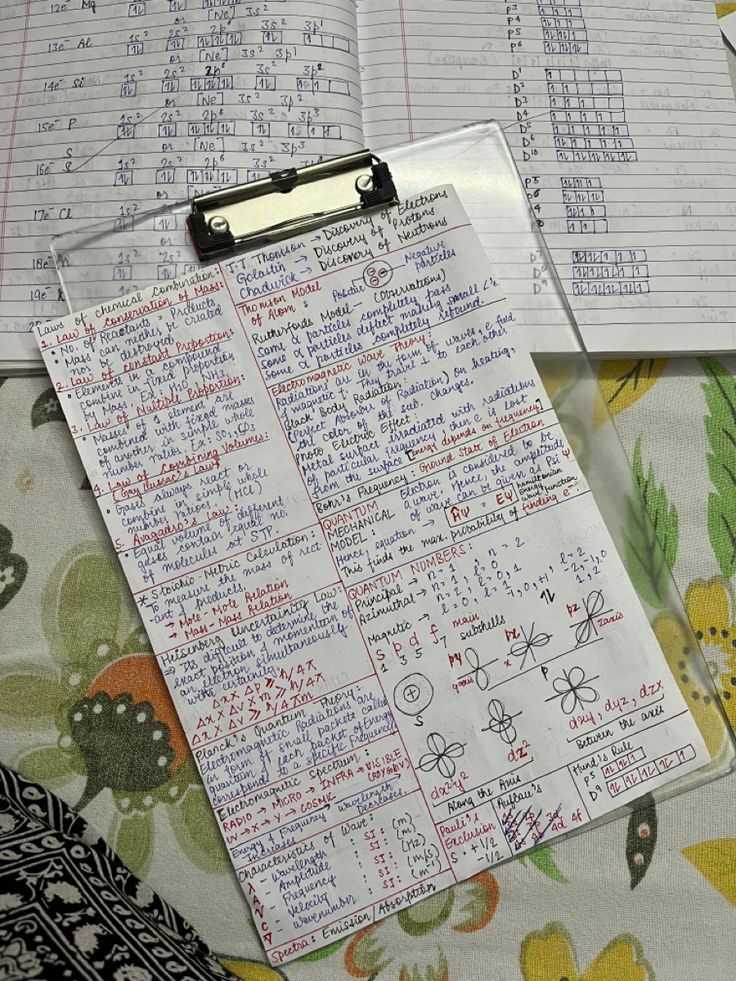 12e⁻ Mg
or [Ne] 3s²
13e⁻ Al 1s² 2s² 2p⁶ 3s² 3p¹
or [Ne] 3s² 3p¹
14e⁻ Si 1s² 2s² 2p⁶ 3s² 3p²
or [Ne] 3s² 3p²
15e⁻ P 1s² 2s² 2p⁶ 3s² 3p³
or [Ne] 3s² 3p³
S
16e⁻ S 1s² 2s² 2p⁶ 3s²
or [Ne]
17e⁻ Cl 1s² 2s²
18e⁻ A
19e⁻ K
P3
P4
P5
P6
D1
D2
D3
D4
D5
D6
D10
P5
Laws of Chemical Combination:
1. Law of conservation of Mass:
• No. of Reactants = Products
• Mass can neither be created
nor be destroyed
2. Law of constant Proportion:
• Elements in a compound
combine in fixed proportion
by Mass. Ex: H2O, NH3
3. Law of Multiple Proportion:
• Masses of 1 element are
combined with fixed masses
of another in simple whole
number ratios. Ex: SO2, CO3
4. Law of Combining Volumes:
[Gay lussac's Law]
• Gases always react or
combine in simple whole
number ratios. (HCl)
5. Avagadro's Law:
• Equal volume of different
gases contain equal no.
of molecules at STP.
* Stoichio-Metric Calculation:
To measure the mass of rect
ant & products
→ Mole-Mole Relation
→ Mass-Mass Relation
Heisenberg Uncertainity Law:
⇒ Its difficult to determine the
exact position & momentum of
an electron simultaneously
with certainity.
Δx × Δp ≥ h/4π
Δx × Δv × m ≥ h/4π
Δx × Δv ≥ h/4πm
Planck's Quantum Theory:
Electromagnetic Radiations are
in form of small packets called
quantum & each packet of Energy
corresponds to a specific Frequency
Electromagnetic Spectrum:
RADIO → MICRO → INFRA → VISIBLE
(ROYGBIV)
UV → X → γ → COSMIC
Energy & Frequency Increases
wavelength Decreases
Characteristics of Wave:
λ - Wavelength : SI: (m)
A - Amplitude : SI: (m)
ν - Frequency : SI: (Hz)
C - Velocity : SI: (m/s)
ν̄ - wavenumber : SI: (m⁻¹)
Spectra: Emission / Absorption
J.J. Thomson → Discovery of Electrons
Golastin → Discovery of Protons
Chadwick → Discovery of Neutrons
Thomson Model
of Atom:
Positive
Negative
particles
Rutherfords Model - (Observations)
Some α particles completely pass
some α particles deflect making small ∠'s.
some α particles completely rebound.
Electromagnetic Wave Theory:
Radiations are in the form of waves, e field
& magnetic f. They travel ⊥ to each other
Black Body Radiation:
(Perfect Absorber of Radiation) on heating,
the color of the sub. changes.
Photo Electric Effect:
Metal surface irradiated with radiations
of particular frequency then e⁻ is lost
from the surface [energy depends on frequency]
Bohr's Frequency: Ground State of Electron
QUANTUM
MECHANICAL
MODEL:
Electron is considered to be
a wave. Hence, the amplitude
of wave can be given as Psi Ψ
Hence, equation of →
ĤΨ = EΨ
hamiltonian
Energy
wave function
This finds the max. probability of finding e⁻.
QUANTUM NUMBERS:
Principal → n = 1, n = 2
Azimuthal →
Magnetic →
s p d f
1 3 5 7
main
subshells
py
yaxis
px
x
pz
zaxis
S
P
dxy, dyz, dzx
Between the axis
dx²-y²
dz²
Along the Axis
Pauli's
Exclusion
S → +1/2
-1/2
Aufbau's
Hund's Rule
P5
D9